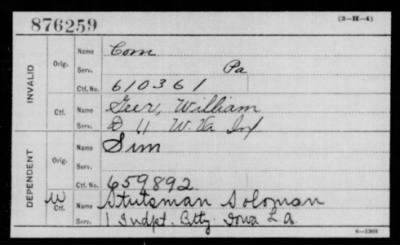 876259
(3-H-4)
INVALID
Orig. Name Com
Serv. Pa
Ctf. No. 610361
Ctf. Name Geer, William
Serv. D 11 W. Va Inf
DEPENDENT
Orig. Name Sim
Serv.
Ctf. No. 659892
W Ctf. Name Stutsman Soloman
Serv. 1 Indpt. Btty. Iowa L a